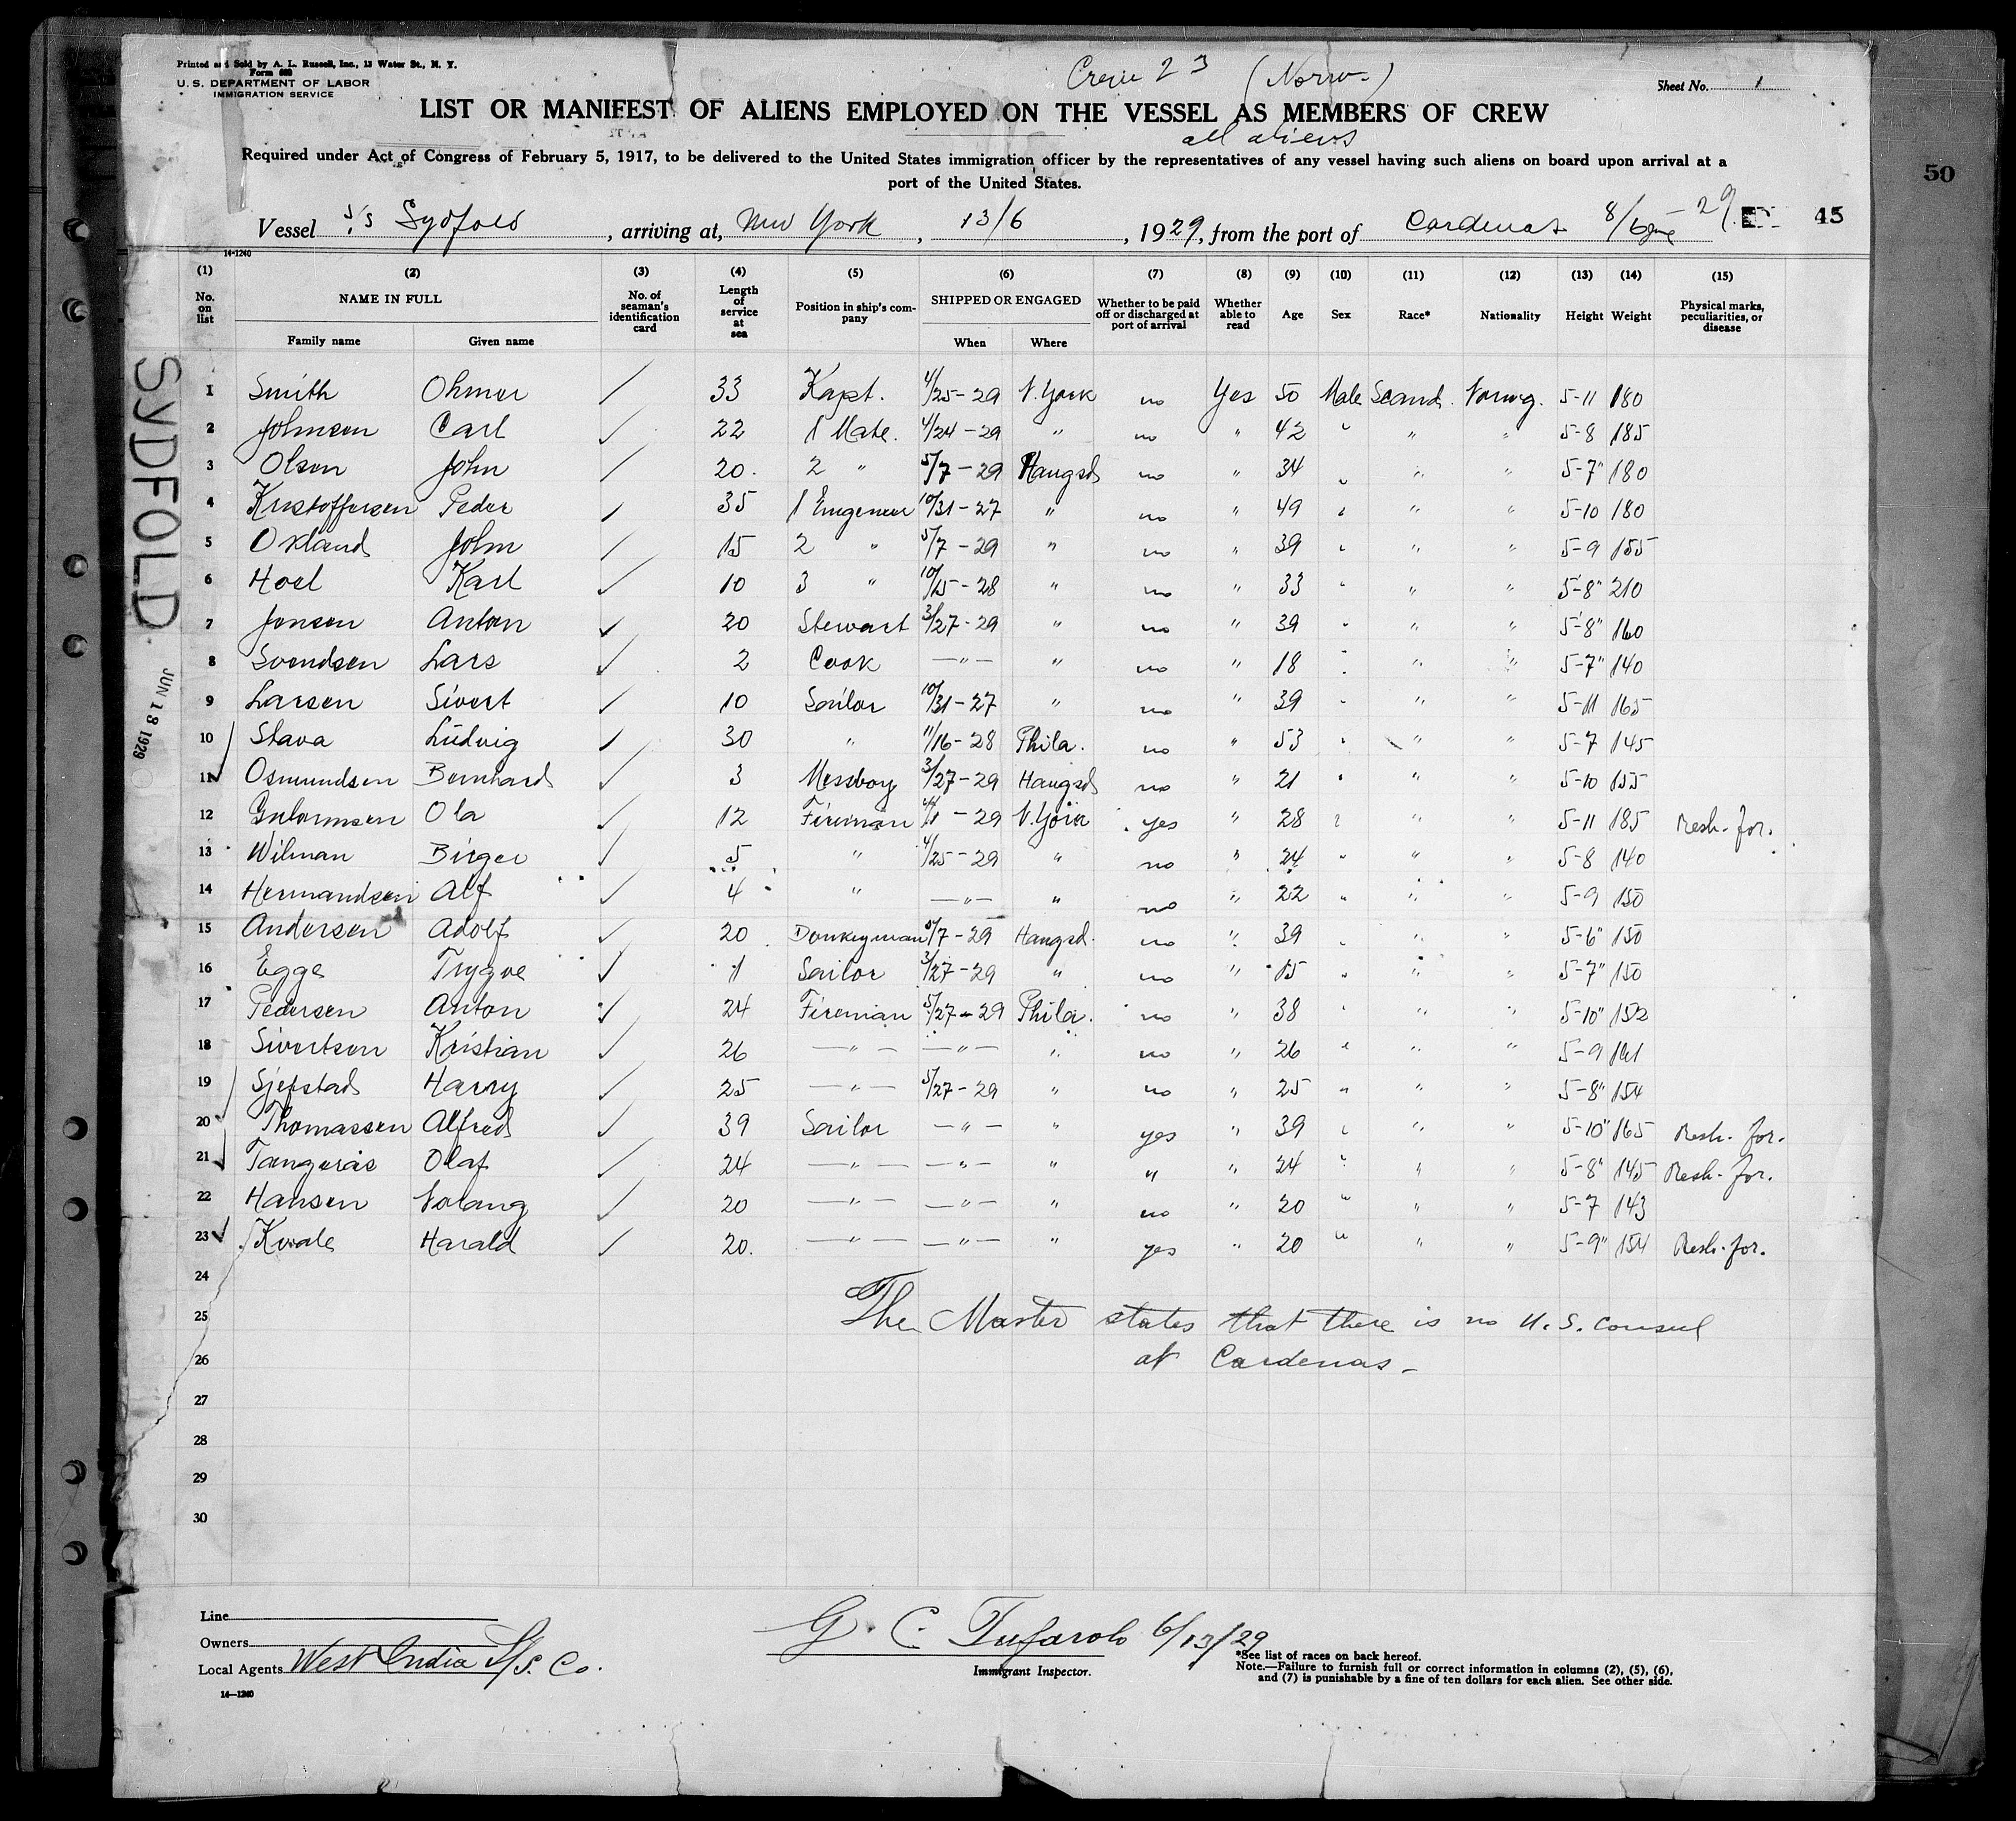 Printed and Sold by A. L. Russell, Inc., 13 Water St., N. Y.
Form 689
U. S. DEPARTMENT OF LABOR
IMMIGRATION SERVICE
Crew 23 (Norw.)
Sheet No. 1
LIST OR MANIFEST OF ALIENS EMPLOYED ON THE VESSEL AS MEMBERS OF CREW
all aliens
Required under Act of Congress of February 5, 1917, to be delivered to the United States immigration officer by the representatives of any vessel having such aliens on board upon arrival at a
port of the United States.
50
Vessel S/S Sydfold, arriving at, New York, 13/6, 1929, from the port of Cardenas 8/6 29. 45
14-1240
(1) (2) (3) (4) (5) (6) (7) (8) (9) (10) (11) (12) (13) (14) (15)
No. on list NAME IN FULL Family name Given name No. of seaman's identification card Length of service at sea Position in ship's company SHIPPED OR ENGAGED When Where Whether to be paid off or discharged at port of arrival Whether able to read Age Sex Race* Nationality Height Weight Physical marks, peculiarities, or disease
SYDFOLD
JUN 18 1929
1 Smith Ohmer 33 Kapt. 4/25-29 N. York no Yes 50 Male Scand. Norwg. 5-11 180
2 Johnsen Carl 22 1 Mate. 4/24-29 " no " 42 " " " 5-8 185
3 Olsen John 20. 2 " 5/7-29 Haugsd no " 34 " " " 5-7" 180
4 Kristoffersen Peder 35 1 Engeneer 10/31-27 " no " 49 " " " 5-10 180
5 Oxland John 15 2 " 5/7-29 " no " 39 " " " 5-9 155
6 Hoel Karl 10 3 " 10/15-28 " no " 33 " " " 5-8" 210
7 Jensen Anton 20 Stewart 3/27-29 " no " 39 " " " 5-8" 160
8 Svendsen Lars 2 Cook —"— " no " 18 " " " 5-7" 140
9 Larsen Sivert 10 Sailor 10/31-27 " no " 39 " " " 5-11 165
10 Stava Ludvig 30 " 11/16-28 Phila. no " 53 " " " 5-7 145
11 Osmundsen Bernhard 3 Messboy 3/27-29 Haugsd no " 21 " " " 5-10 155
12 Ola 12 Fireman -29 N. York yes " 28 " " " 5-11 185 Resh. for.
13 Wilman Birger 5 " 4/25-29 " no " 24 " " " 5-8 140
14 Hermandsen Alf 4 " —"— " no " 22 " " " 5-9 150
15 Andersen Adolf 20 Donkeyman 5/7-29 Haugsd. no " 39 " " " 5-6" 150
16 Egge Trygve 1 Sailor 3/27-29 " no " 15 " " " 5-7" 150
17 Pedersen Anton 24 Fireman 5/27-29 Phila. no " 38 " " " 5-10" 152
18 Sivertsen Kristian 26 —"— —"— " no " 26 " " " 5-9 161
19 Sjefstad Harry 25 —"— 5/27-29 " no " 25 " " " 5-8" 154
20 Thomassen Alfred 39 Sailor —"— " yes " 39 " " " 5-10" 165 Resh. for.
21 Tangerås Olaf 24 —"— —"— " " " 24 " " " 5-8" 145 Resh. for.
22 Hansen 20 —"— —"— " no " 20 " " " 5-7 143
23 Kvale Harald 20. —"— —"— " yes " 20 " " " 5-9" 154 Resh. for.
24
25 The Master states that there is no U. S. consul
26 at Cardenas –
27
28
29
30
Line
Owners
Local Agents West India S/S. Co.
14—1240
G. C. Tufarolo 6/13/29
Immigrant Inspector.
*See list of races on back hereof.
Note.—Failure to furnish full or correct information in columns (2), (5), (6),
and (7) is punishable by a fine of ten dollars for each alien. See other side.